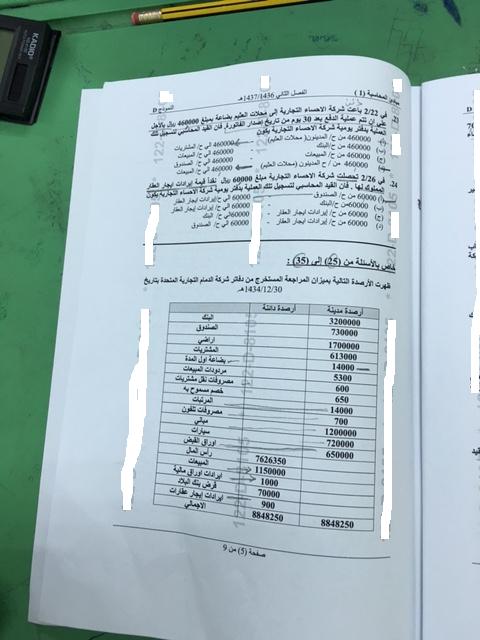 KADIO
مبادئ المحاسبة (1)
الفصل الثاني 1437/1436هـ
النموذج D
23. في 2/22 باعت شركة الاحساء التجارية إلى محلات العثيم بضاعة بمبلغ 460000 ريال بالأجل
على أن تتم عملية الدفع بعد 30 يوم من تاريخ إصدار الفاتورة، فإن القيد المحاسبي لتسجيل تلك
العملية بدفاتر يومية شركة الاحساء التجارية يكون
460000 من ح/ المدينون( محلات العثيم) 460000 الي ح/ المشتريات
460000 من ح/البنك 460000 الي ح/ المبيعات
460000 من ح/ المبيعات 460000 الي ح/ الصندوق
460000 من / ح المدينون (محلات العثيم) 460000 الي ح/ المبيعات
24. في 2/26 تحصلت شركة الاحساء التجارية مبلغ 60000 ريال نقدا قيمة إيرادات ايجار العقار
المملوك لها. فأن القيد المحاسبي لتسجيل تلك العملية بدفاتر يومية شركة الاحساء التجارية يكون
(أ) 60000 من ح/ الصندوق - 60000 الي ح/ إيرادات ايجار العقار
(ب) 60000 من ح/البنك - 60000 الي ح/ إيرادات ايجار العقار
(ج) 60000 من ح/ إيرادات ايجار العقار - 60000 الي ح/ البنك
(د) 60000 من ح/ إيرادات ايجار العقار - 60000 الي ح/ الصندوق
خاص بالأسئلة من (25) إلى (35) :
ظهرت الأرصدة التالية بميزان المراجعة المستخرج من دفاتر شركة الدمام التجارية المتحدة بتاريخ
1434/12/30هـ
أرصدة مدينة أرصدة دائنة
3200000 البنك
730000 الصندوق
1700000 اراضي
613000 المشتريات
14000 بضاعة اول المدة
5300 مردودات المبيعات
600 مصروفات نقل مشتريات
650 خصم مسموح به
14000 المرتبات
700 مصروفات تلفون
1200000 مباني
720000 سيارات
650000 اوراق القبض
7626350 رأس المال
1150000 المبيعات
1000 ايرادات اوراق مالية
70000 قرض بنك البلاد
900 ايرادات إيجار عقارات
8848250 8848250 الاجمالي
صفحة (5) من 9